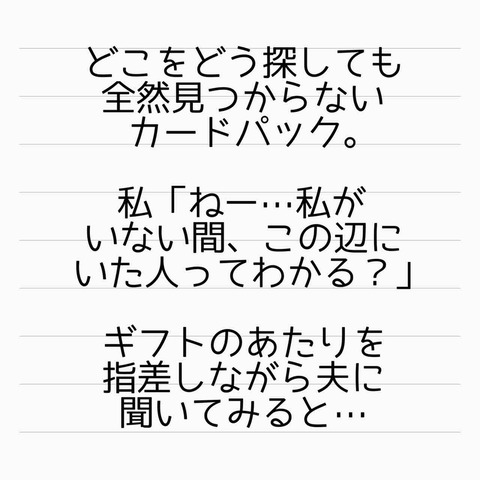 どこをどう探しても
全然見つからない
カードパック。
私「ねー…私が
いない間、この辺に
いた人ってわかる？」
ギフトのあたりを
指差しながら夫に
聞いてみると…